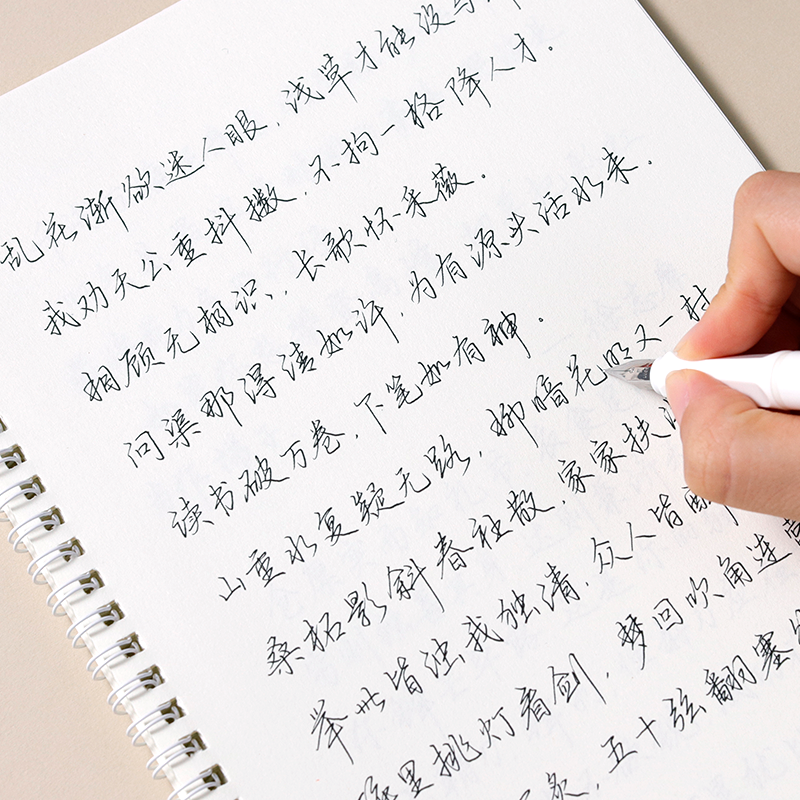 乱花渐欲迷人眼，浅草才能没
我劝天公重抖擞，不拘一格降人才。
相顾无相识，长歌怀采薇。
问渠那得清如许，为有源头活水来。
读书破万卷，下笔如有神。
山重水复疑无路，柳暗花明又一村
桑柘影斜春社散，家家扶
举世皆浊我独清，众人皆醉
里挑灯看剑，梦回吹角连
炙，五十弦翻塞